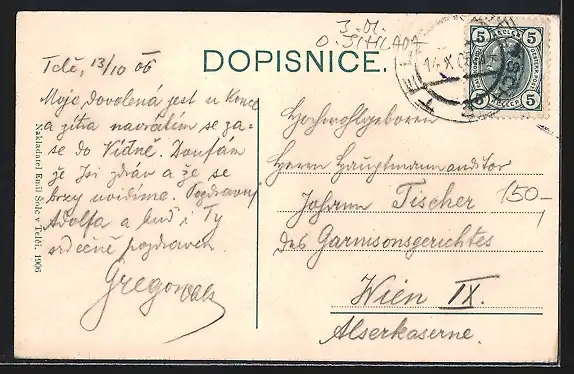 DOPISNICE.
Telč, 13/10 06
Moje dovolená jest u konce
a zítra navrátím se za-
se do Vídně. Doufám
že Jsi zdráv a že se
brzy uvidíme. Pozdravuj
Adolfa a buď i Ty
srdečně pozdraven
Nakladatel Emil Šolc v Telči. 1906
5 5
5 5
14 X 0
Hochwohlgeboren
Herrn Hauptmann auditor
Johann Tischer
des Garnisonsgerichtes
Wien IX.
Alserkaserne.
150,-